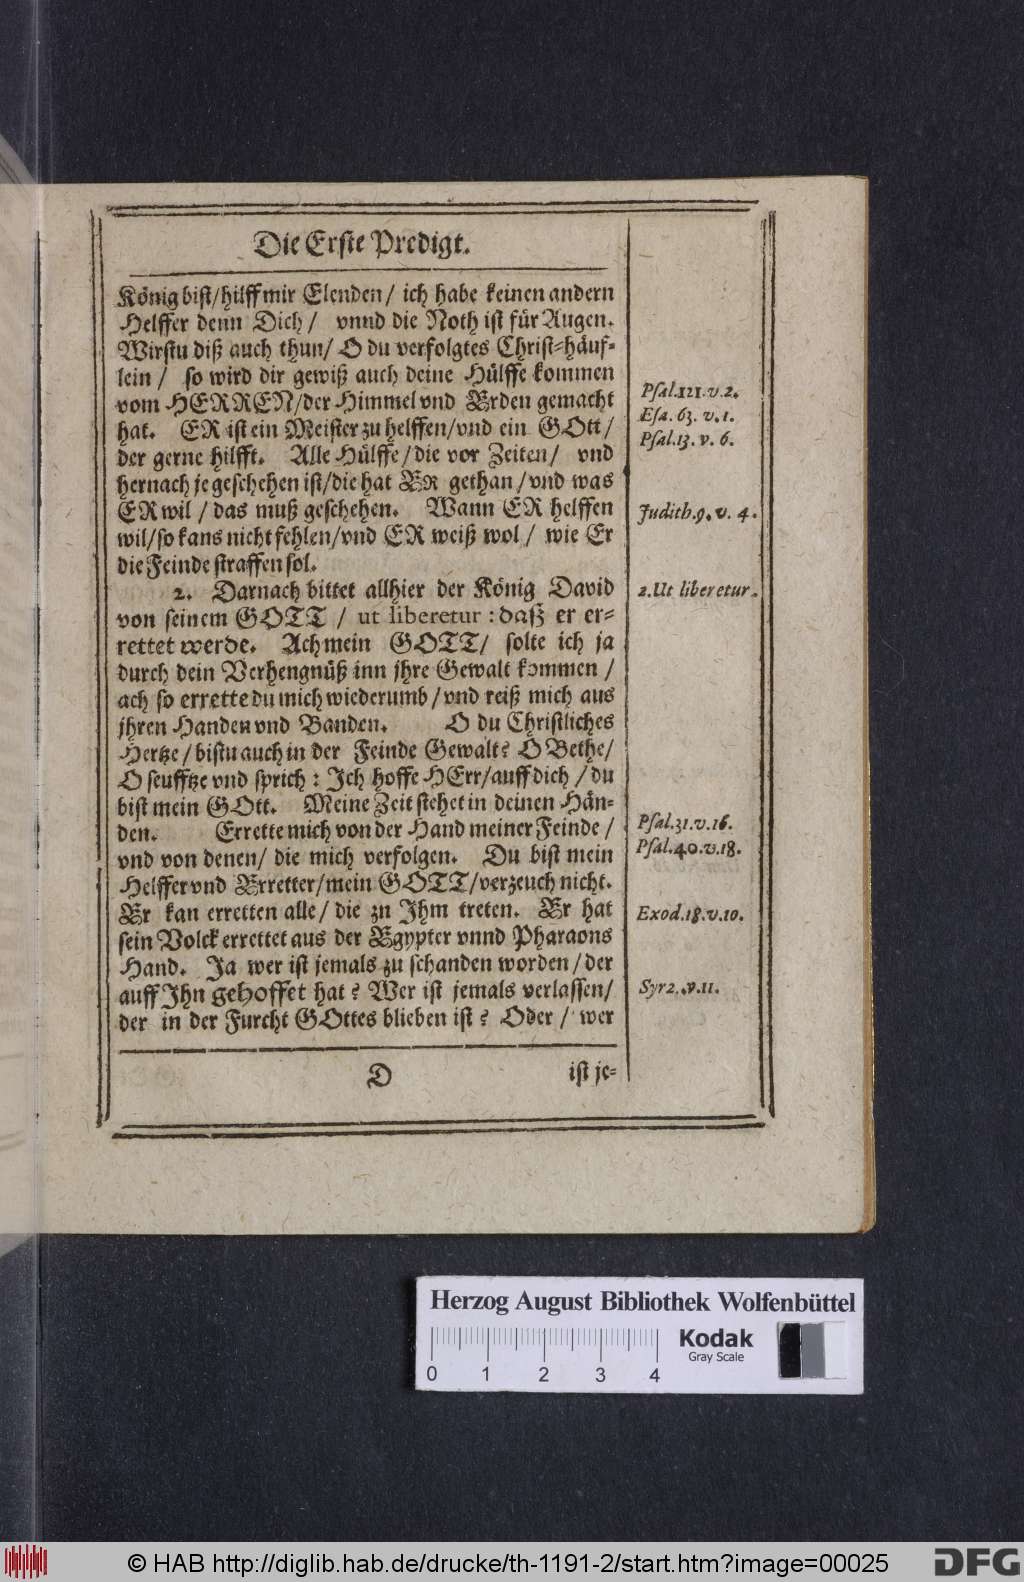 Die Erste Predigt.
König bist/hilff mir Elenden/ ich habe keinen andern
Helffer denn Dich/ vnnd die Noth ist für Augen.
Wirstu diß auch thun/ O du verfolgtes Christ-häuf-
lein/ so wird dir gewiß auch deine Hülffe kommen
vom HERREN/der Himmel vnd Erden gemacht
hat. ER ist ein Meister zu helffen/vnd ein GOtt/
der gerne hilfft. Alle Hülffe/die vor Zeiten/ vnd
hernach je geschehen ist/die hat ER gethan/vnd was
ER wil/das muß geschehen. Wann ER helffen
wil/so kans nicht fehlen/vnd ER weiß wol/ wie Er
die Feinde straffen sol.
2. Darnach bittet allhier der König David
von seinem GOTT/ ut liberetur: daß er er-
rettet werde. Ach mein GOTT/ solte ich ja
durch dein Verhengnüß inn jhre Gewalt kommen/
ach so errette du mich wiederumb/vnd reiß mich aus
jhren Handen vnd Banden. O du Christliches
Hertze/bistu auch in der Feinde Gewalt? O Bethe/
O seufftze vnd sprich: Ich hoffe HErr/auff dich/du
bist mein GOtt. Meine Zeit stehet in deinen Hän-
den. Errette mich von der Hand meiner Feinde/
vnd von denen/ die mich verfolgen. Du bist mein
Helffer vnd Erretter/mein GOTT/verzeuch nicht.
Er kan erretten alle/ die zu Ihm treten. Er hat
sein Volck errettet aus der Egypter vnnd Pharaons
Hand. Ja wer ist jemals zu schanden worden/der
auff Ihn gehoffet hat? Wer ist jemals verlassen/
der in der Furcht GOttes blieben ist? Oder/ wer
D
ist je-
Psal.121.v.2.
Esa. 63. v.1.
Psal.13. v. 6.
Judith.9.v. 4.
2.Ut liberetur.
Psal.31.v.16.
Psal.40.v.18.
Exod.18.v.10.
Syr2.v.11.
Herzog August Bibliothek Wolfenbüttel
Kodak
Gray Scale
0 1 2 3 4
© HAB http://diglib.hab.de/drucke/th-1191-2/start.htm?image=00025
DFG